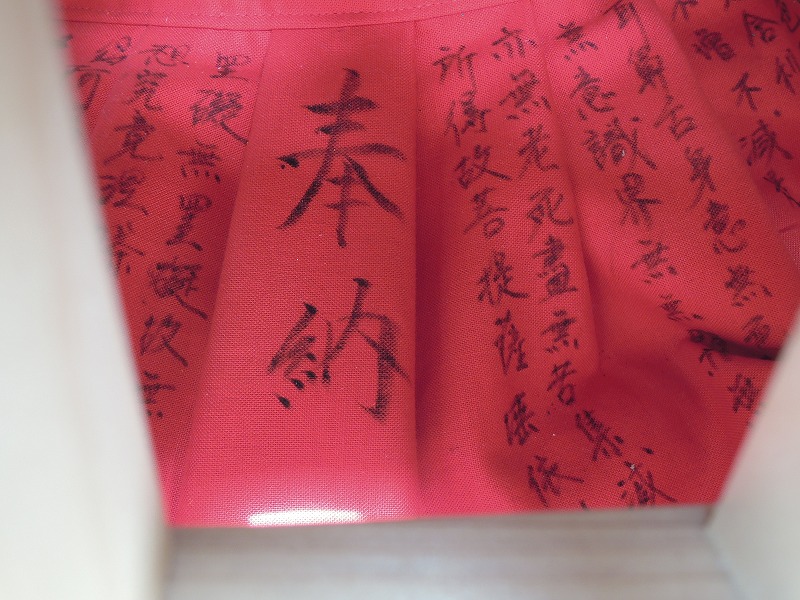 舍利
不增不減
耳鼻舌身意無色
無意識界無無
亦無老死盡無苦集滅
所得故菩提薩埵依
奉納
罣礙無罣礙故無
想究竟涅槃